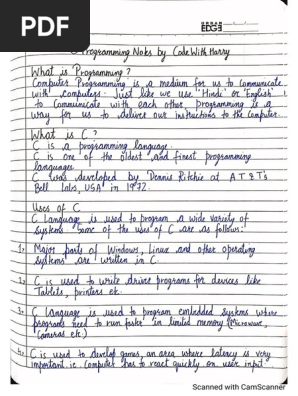 PDF
Programming Notes by Code With Harry
What is Programming?
Computer Programming is a medium for us to communicate
with computers. Just like we use "Hindi" or "English"
to communicate with each other, programming is a
way for us to deliver our instructions to the computer.
What is C?
C is a programming language.
C is one of the oldest and finest programming
languages
C was developed by Dennis Ritchie at AT&T's
Bell Labs, USA in 1972.
Uses of C
C Language is used to program a wide variety of
systems. Some of the uses of C are as follows:
1. Major parts of Windows, Linux and other operating
systems are written in C.
2. C is used to write driver programs for devices like
Tablets, printers etc.
3. C language is used to program embedded systems where
programs need to run faster in limited memory (Microwave,
Cameras etc.)
4. C is used to develop games, an area where latency is very
important i.e. Computer has to react quickly on user input.
Scanned with CamScanner